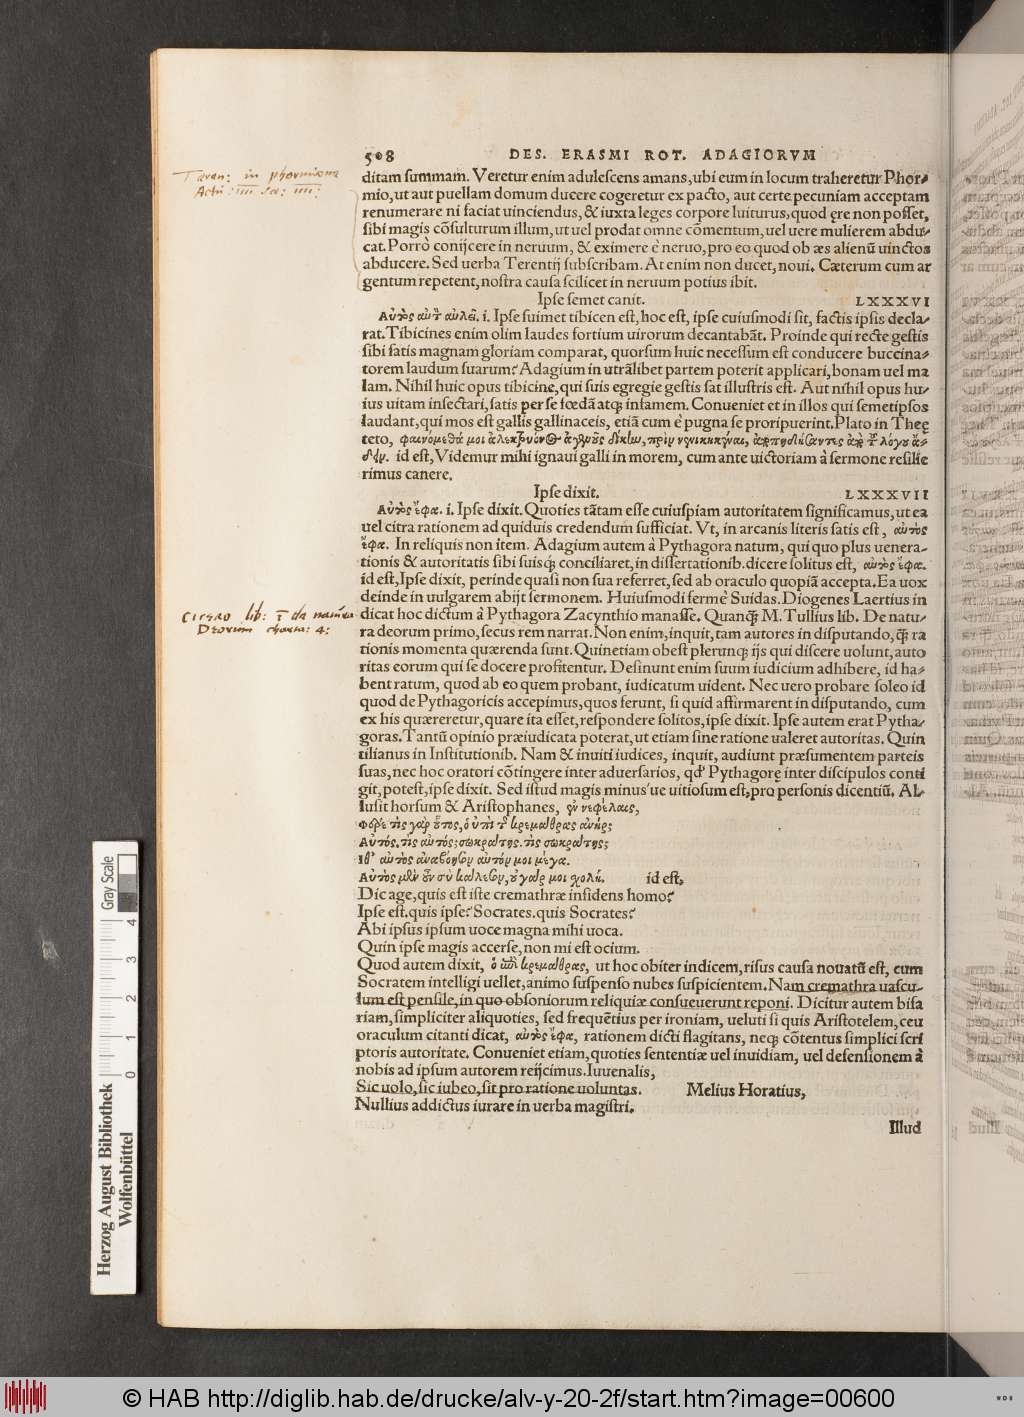 508 DES. ERASMI ROT. ADAGIORVM
Teren: in phormione
Actu: IIII sce: IIII:
ditam summam. Veretur enim adulescens amans, ubi eum in locum traheretur Phor-
mio, ut aut puellam domum ducere cogeretur ex pacto, aut certe pecuniam acceptam
renumerare ni faciat uinciendus, & iuxta leges corpore luiturus, quod ęre non posset,
sibi magis cõsulturum illum, ut uel prodat omne cõmentum, uel uere mulierem abdu-
cat. Porrò conijcere in neruum, & eximere è neruo, pro eo quod ob æs alienũ uinctos
abducere. Sed uerba Terentij subscribam. At enim non ducet, noui. Cæterum cum ar
gentum repetent, nostra causa scilicet in neruum potius ibit.
Ipse semet canit. LXXXVI
Αὐτὸς αὑτὸν αὐλεῖ. i. Ipse suimet tibicen est, hoc est, ipse cuiusmodi sit, factis ipsis decla-
rat. Tibicines enim olim laudes fortium uirorum decantabãt. Proinde qui recte gestis
sibi satis magnam gloriam comparat, quorsum huic necessum est conducere buccina-
torem laudum suarum? Adagium in utrãlibet partem poterit applicari, bonam uel ma
lam. Nihil huic opus tibicine, qui suis egregie gestis sat illustris est. Aut nihil opus hu-
ius uitam insectari, satis per se fœdã atq; infamem. Conueniet et in illos qui semetipsos
laudant, qui mos est gallis gallinaceis, etiã cum è pugna se proripuerint. Plato in Theę
teto, φαινόμεθά μοι ἀλεκτρυόνος ἀγεννοῦς δίκην, πρὶν νενικηκέναι, ἀποπηδήσαντες ἀπὸ τοῦ λόγου ᾄ-
δειν. id est, Videmur mihi ignaui galli in morem, cum ante uictoriam à sermone resilie
rimus canere.
Ipse dixit. LXXXVII
Αὐτὸς ἔφα. i. Ipse dixit. Quoties tãtam esse cuiuspiam autoritatem significamus, ut ea
uel citra rationem ad quiduis credendum sufficiat. Vt, in arcanis literis satis est, αὐτὸς
ἔφα. In reliquis non item. Adagium autem à Pythagora natum, qui quo plus uenera-
tionis & autoritatis sibi suisq; conciliaret, in dissertationib. dicere solitus est, αὐτὸς ἔφα.
id est, Ipse dixit, perinde quasi non sua referret, sed ab oraculo quopiã accepta. Ea uox
deinde in uulgarem abijt sermonem. Huiusmodi fermè Suidas. Diogenes Laertius in
Cicero lib: ī de natura
Deorum charta: 4:
dicat hoc dictum à Pythagora Zacynthio manasse. Quanq̃ M. Tullius lib. De natu-
ra deorum primo, secus rem narrat. Non enim, inquit, tam autores in disputando, q̃ ra
tionis momenta quærenda sunt. Quinetiam obest plerunq; ijs qui discere uolunt, auto
ritas eorum qui se docere profitentur. Desinunt enim suum iudicium adhibere, id ha-
bent ratum, quod ab eo quem probant, iudicatum uident. Nec uero probare soleo id
quod de Pythagoricis accepimus, quos ferunt, si quid affirmarent in disputando, cum
ex his quæreretur, quare ita esset, respondere solitos, ipse dixit. Ipse autem erat Pytha-
goras. Tantũ opinio præiudicata poterat, ut etiam sine ratione ualeret autoritas. Quin
tilianus in Institutionib. Nam & inuiti iudices, inquit, audiunt præsumentem parteis
suas, nec hoc oratori cõtingere inter aduersarios, qđ Pythagorę inter discipulos conti
git, potest, ipse dixit. Sed istud magis minus'ue uitiosum est, pro personis dicentiũ. Al-
lusit horsum & Aristophanes, ἐν νεφέλαις,
Φέρε τίς γὰρ οὗτος, ὁ ἐπὶ τῆς κρεμάθρας ἀνήρ;
Αὐτός. τίς αὐτός; σωκράτης. τίς σωκράτης;
Ιθ' αὐτὸς ἀναβόησον αὐτόν μοι μέγα.
Αὐτὸς μὲν οὖν σὺ κάλεσον, οὐ γάρ μοι σχολή. id est,
Dic age, quis est iste cremathræ insidens homo?
Ipse est. quis ipse? Socrates. quis Socrates?
Abi ipsus ipsum uoce magna mihi uoca.
Quin ipse magis accerse, non mi est ocium.
Quod autem dixit, ὁ ἐπὶ κρεμάθρας, ut hoc obiter indicem, risus causa nouatũ est, cum
Socratem intelligi uellet, animo suspenso nubes suspicientem. Nam cremathra uascu-
lum est pensile, in quo obsoniorum reliquiæ consueuerunt reponi. Dicitur autem bifa
riam, simpliciter aliquoties, sed frequẽtius per ironiam, ueluti si quis Aristotelem, ceu
oraculum citanti dicat, αὐτὸς ἔφα, rationem dicti flagitans, neq; cõtentus simplici scri
ptoris autoritate. Conueniet etiam, quoties sententiæ uel inuidiam, uel defensionem à
nobis ad ipsum autorem reijcimus. Iuuenalis,
Sic uolo, sic iubeo, sit pro ratione uoluntas. Melius Horatius,
Nullius addictus iurare in uerba magistri.
Illud
Herzog August Bibliothek
Wolfenbüttel
0 1 2 3 4
Gray Scale
© HAB http://diglib.hab.de/drucke/alv-y-20-2f/start.htm?image=00600